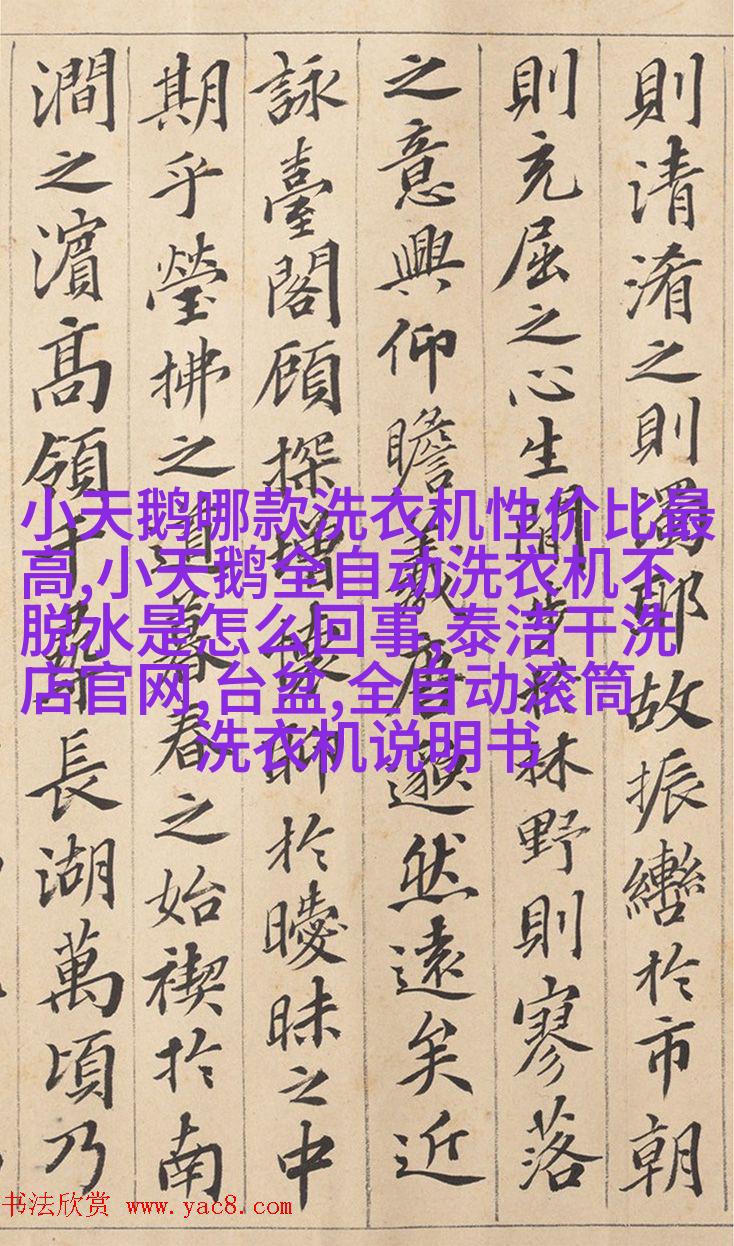 則清淆之則濁耶故振轡於市朝
則充屈之心生閒步於林野則寥落
之意興仰瞻羲唐邈然遠矣近
詠臺閣顾探增懷聊於曖昧之中
期乎瑩拂之道暮春之始禊於南
澗之濵髙領千尋長湖萬頃乃
小天鹅哪款洗衣机性价比最
高,小天鹅全自动洗衣机不
脱水是怎么回事,泰洁干洗
店官网,台盆,全自动滚筒
洗衣机说明书
书法欣赏 www.yac8.com